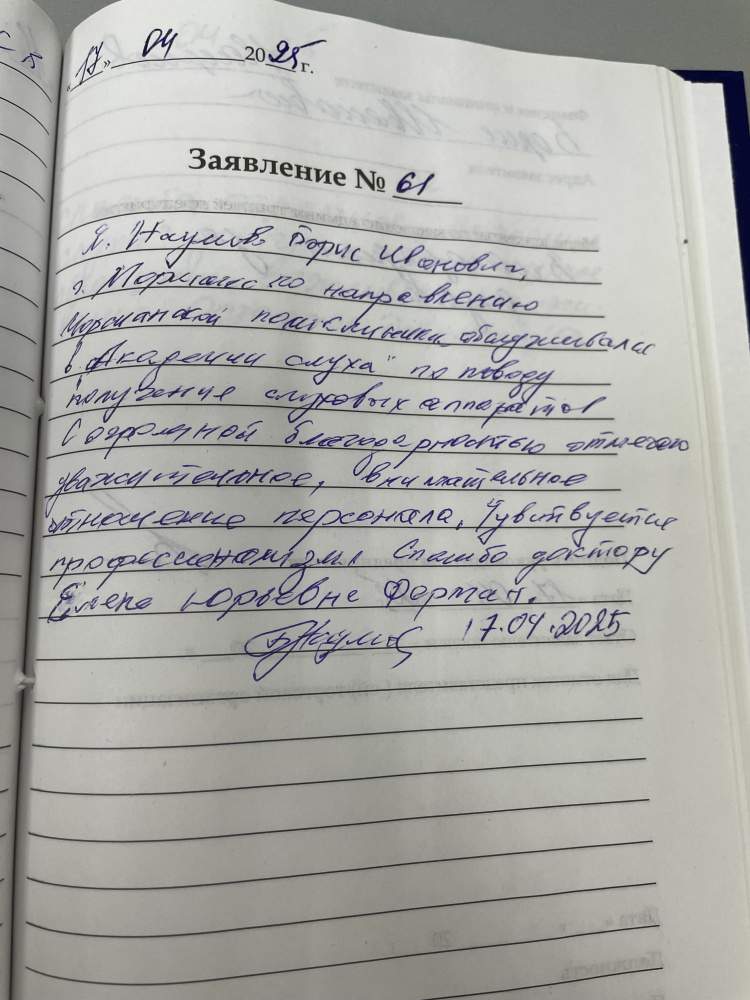 «17» 04 2025 г.
Заявление № 61
Я, Наумов Борис Иванович,
г. Моршанск по направлению
Моршанской поликлиники обслуживался
в "Академии слуха" по поводу
получение слуховых аппаратов
С огромной благодарностью отмечаю
уважительное, внимательное
отношение персонала, Чувствуется
профессионализм. Спасибо доктору
Елене Юрьевне Ферман.
17.04.2025